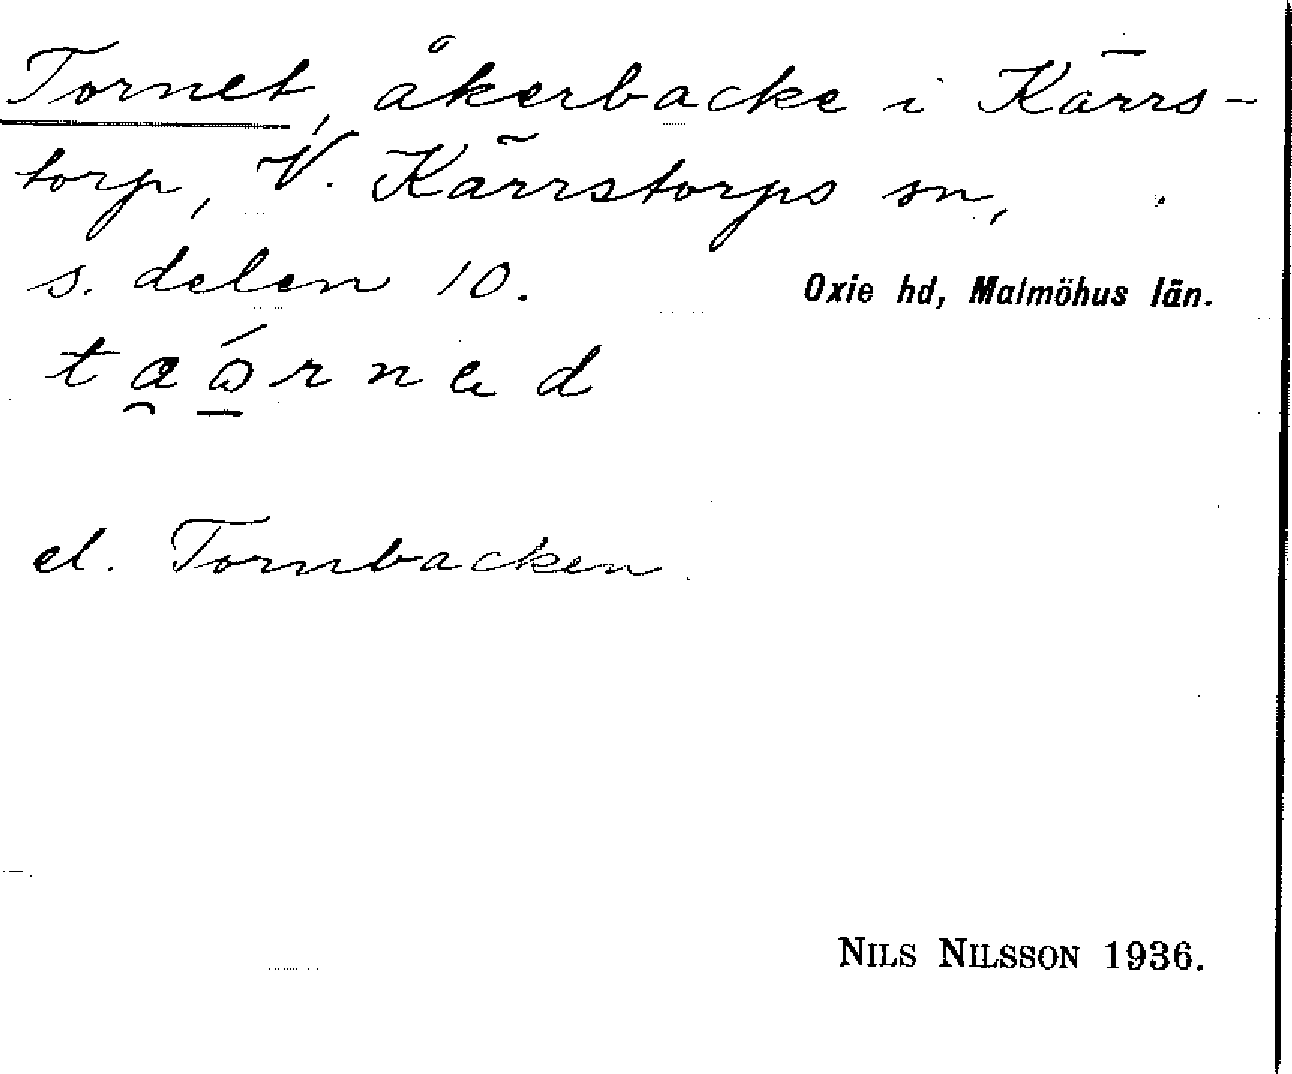 Tornet, åkerbacke i Kärrs-
torp, V. Kärrstorps sn,
s. delen 10.
Oxie hd, Malmöhus län.
el. Tornbacken.
NILS NILSSON 1936.